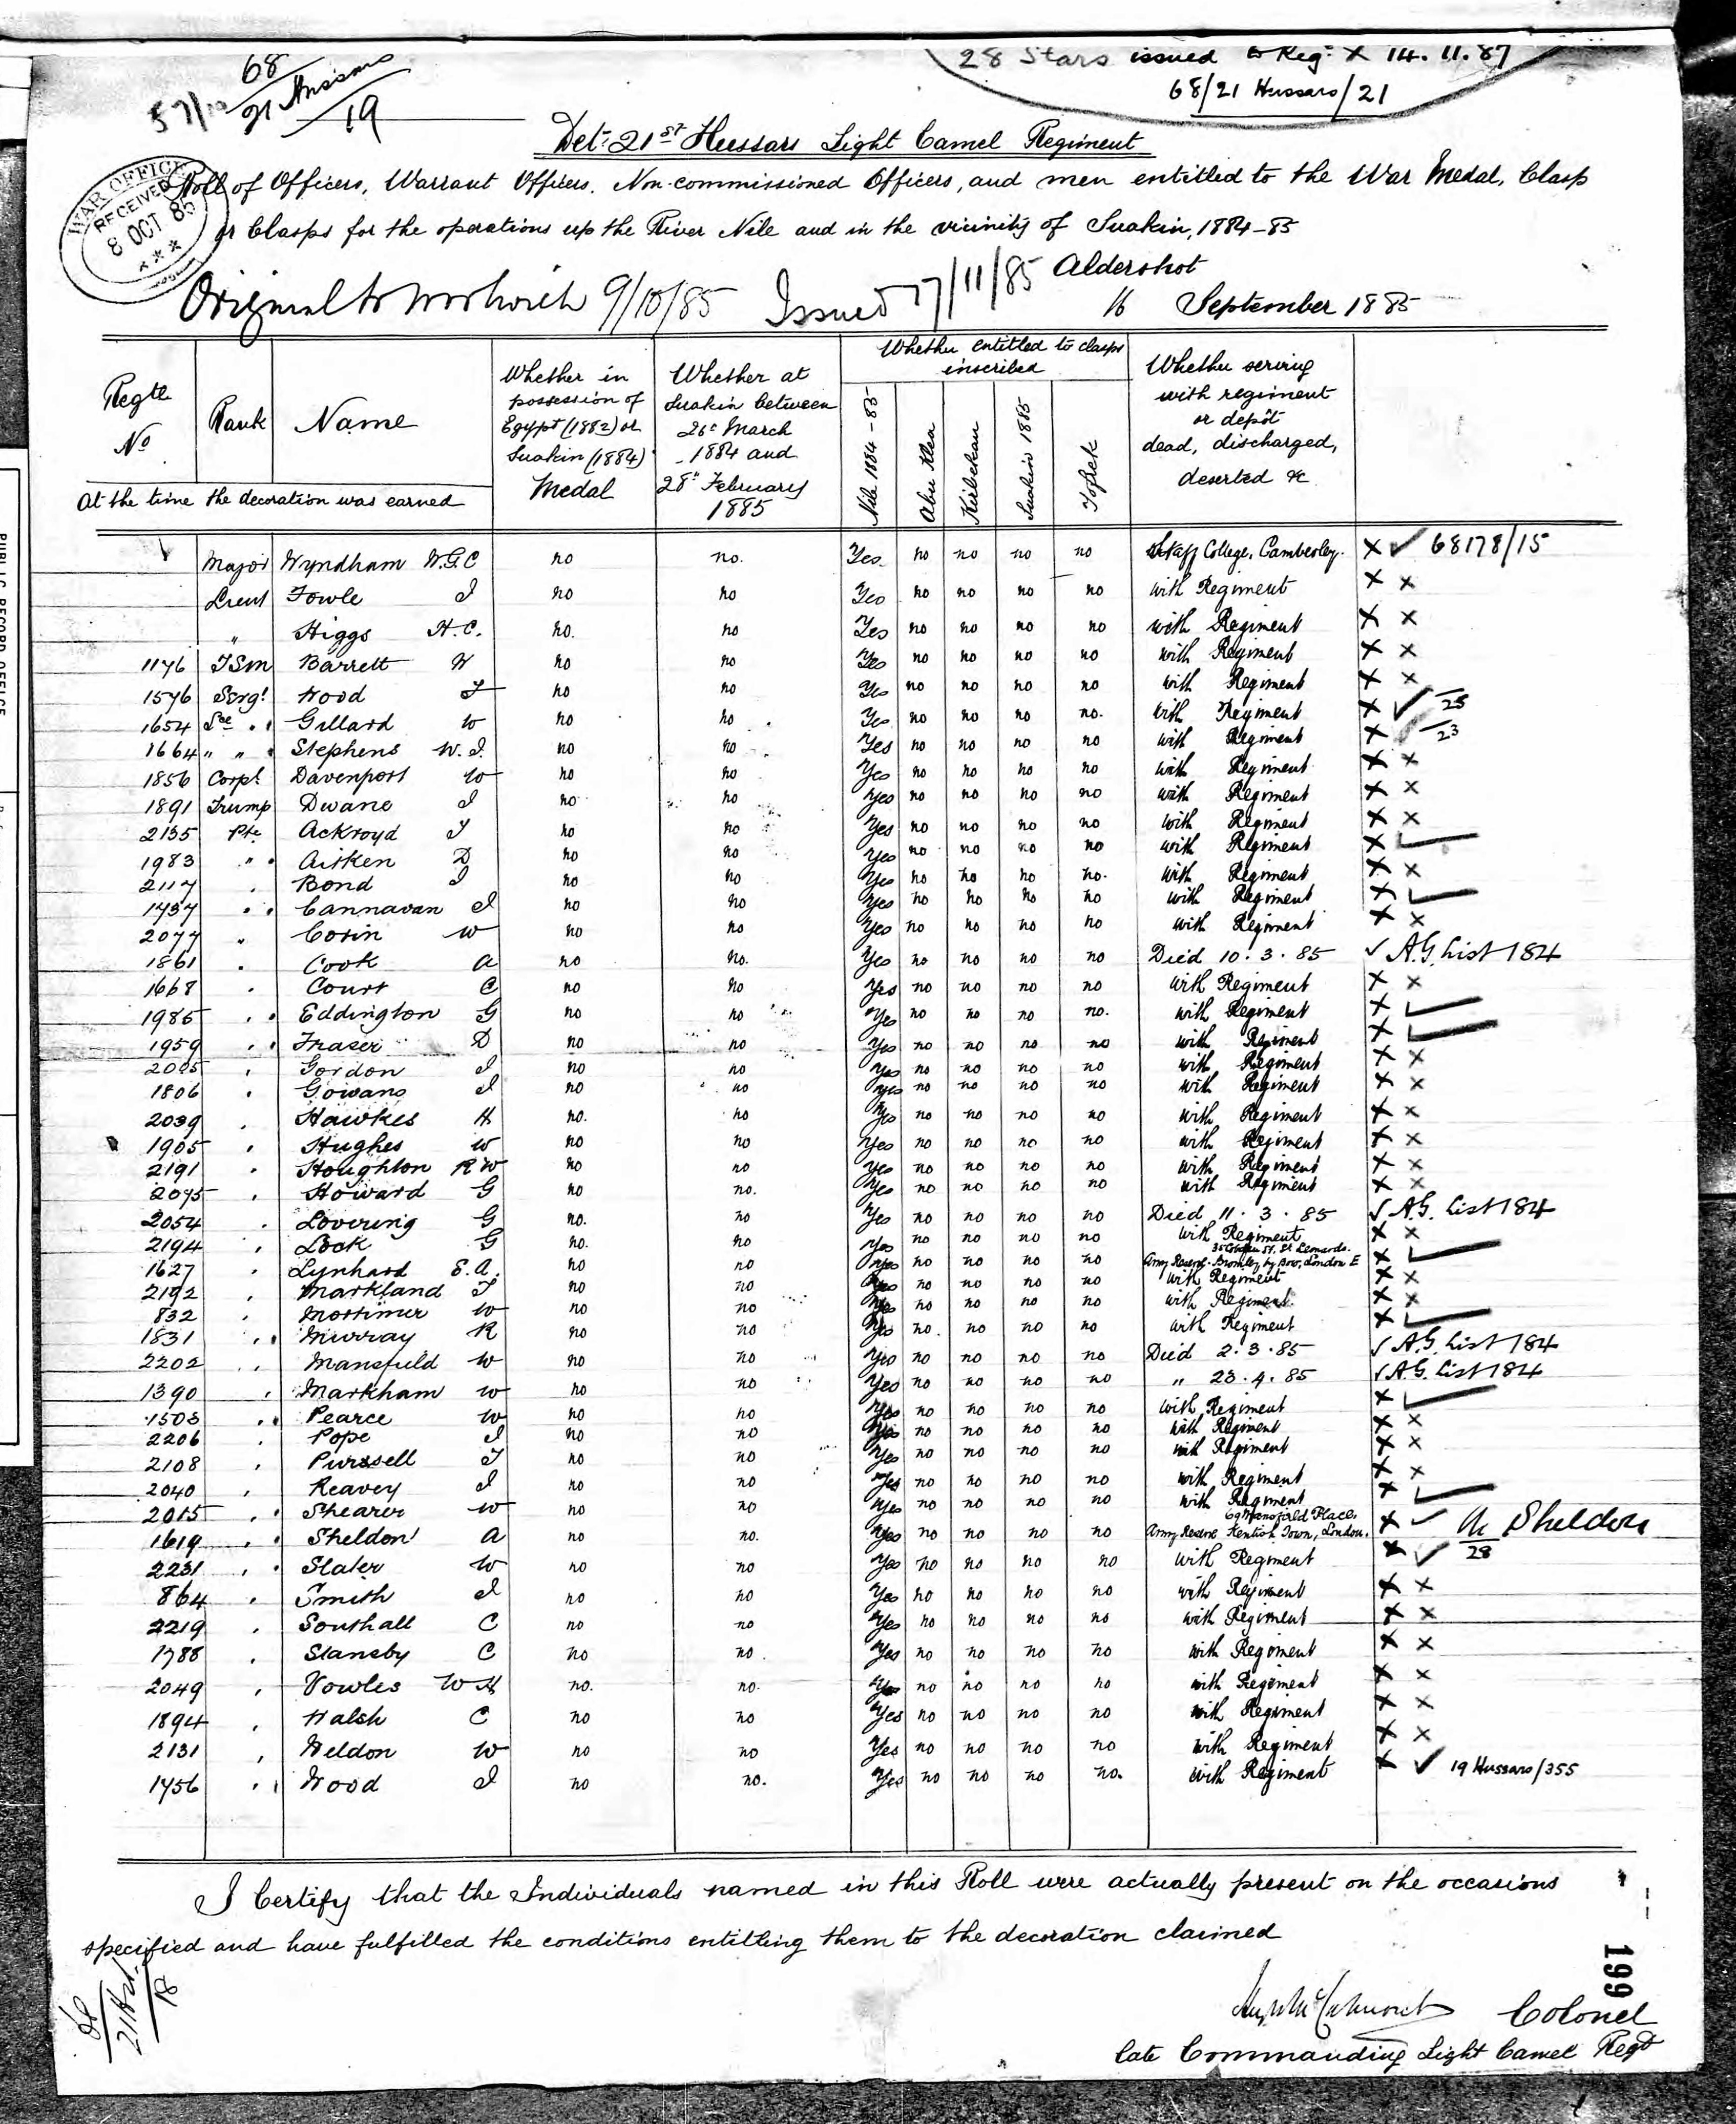 28 Stars issued to Regt X 14.11.87
68/21 Hussars/21
68
21 Hussars
19
Det: 21st Hussars Light Camel Regiment
WAR OFFICE
RECEIVED
8 OCT 85
Roll of Officers, Warrant Officers, Non-commissioned Officers, and men entitled to the War Medal, Clasp
or Clasps for the operations up the River Nile and in the vicinity of Suakin, 1884-85
Original to Woolwich 9/10/85 Issued 17/11/85 Aldershot
16 September 1885
Regtl No Rank Name
At the time the decoration was earned
Whether in possession of Egypt (1882) or Suakin (1884) Medal
Whether at Suakin between 26th March 1884 and 28th February 1885
Whether entitled to clasps inscribed
Nile 1884-85 Abu Klea Kirbekan Suakin 1885 Tofrek
Whether serving with regiment or depôt dead, discharged, deserted &c
Major Wyndham W.G.C no no. Yes no no no no Staff College, Camberley. X ✓ 68178/15
Lieut Fowle J no no Yes no no no no with Regiment X X
" Higgs H.C. no. no Yes no no no no with Regiment X X
1176 TSM Barrett W no no Yes no no no no with Regiment X X
1576 Sergt Wood T no no Yes no no no no with Regiment X X
1654 Gillard W no no Yes no no no no. with Regiment X ✓ 25
1664 " " Stephens W.J. no no Yes no no no no with Regiment X ✓ 23
1856 Corpl Davenport W no no Yes no no no no with Regiment X X
1891 Trump Dwane J no no Yes no no no no with Regiment X X
2135 Pte Ackroyd J no no Yes no no no no with Regiment X X
1983 " Aitken D no no Yes no no no no with Regiment X ✓
2117 Bond J no no Yes no no no no. with Regiment X X
1437 Cannavan J no no Yes no no no no with Regiment X ✓
2077 " Cosin W no no Yes no no no no with Regiment X X
1861 Cook A no no. Yes no no no no Died 10.3.85 ✓ A.G. List 184
1668 Court C no no Yes no no no no with Regiment X X
1985 Eddington G no no Yes no no no no. with Regiment X ✓
1959 Fraser D no no Yes no no no no with Regiment X ✓
Gordon J no no Yes no no no no with Regiment X X
1806 Gowans J no no Yes no no no no with Regiment X X
2039 Hawkes H no. no Yes no no no no with Regiment X X
1905 Hughes W no no Yes no no no no with Regiment X X
2191 Houghton R W no no Yes no no no no with Regiment X X
2075 Howard G no no. Yes no no no no with Regiment X X
2054 Lovering G no. no Yes no no no no Died 11.3.85 ✓ A.G. List 184
2194 Look G no. no Yes no no no no with Regiment X X
1627 Lynhard E.A. no no Yes no no no no Army Reserve. St Leonards. Bromley by Bow, London E X ✓
2192 Markland T no no Yes no no no no with Regiment X X
832 Mortimer W no no Yes no no no no with Regiment X X
1831 Murray R no no Yes no. no no no with Regiment X ✓
2202 Mansfield W no no Yes no no no no Died 2.3.85 ✓ A.G. List 184
1390 Markham W no no Yes no no no no " 23.4.85 ✓ A.G. List 184
1503 Pearce W no no Yes no no no no with Regiment X ✓
2206 Pope J no no Yes no no no no with Regiment X X
2108 Purssell T no no Yes no no no no with Regiment X X
2040 Reavey J no no Yes no no no no with Regiment X X
2015 Shearer W no no Yes no no no no with Regiment X ✓
1619 Sheldon A no no. Yes no no no no Army Reserve 69 Mansfield Place, Kentish Town, London. X ✓ A Sheldon 28
2231 Slater W no no Yes no no no no with Regiment X ✓
864 Smith J no no Yes no no no no with Regiment X X
2219 Southall C no no Yes no no no no with Regiment X X
1788 Stansby C no no. Yes no no no no with Regiment X X
2049 Vowles W H no. no. Yes no no no no with Regiment X X
1894 Walsh C no no Yes no no no no with Regiment X X
2131 Weldon W no no Yes no no no no with Regiment X X
1456 Wood J no no. Yes no no no no. with Regiment X ✓ 19 Hussars/355
I Certify that the Individuals named in this Roll were actually present on the occasions
specified and have fulfilled the conditions entitling them to the decoration claimed
68
21 Hrs
18
199
Colonel
late Commanding Light Camel Regt
PUBLIC RECORD OFFICE